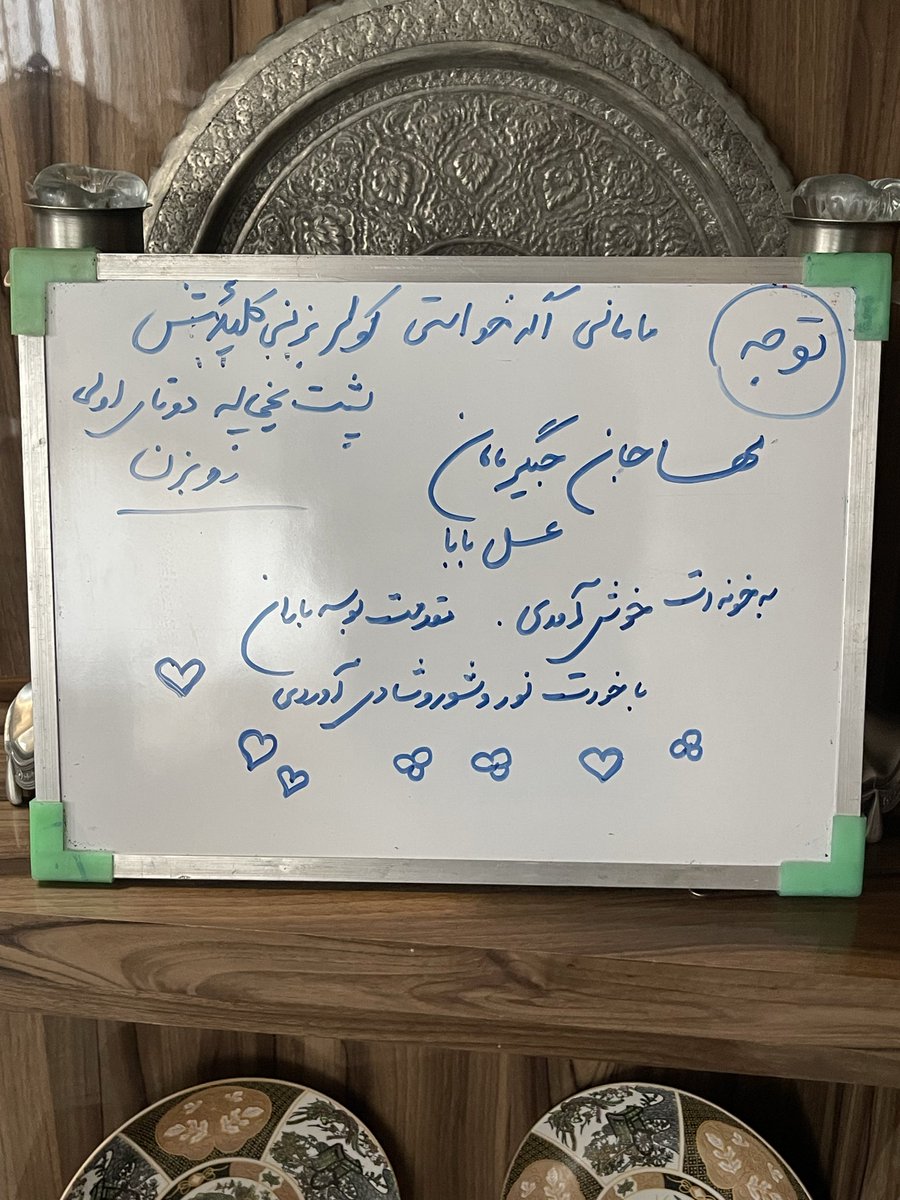 توجه
مامانی اگه خواستی کولر بزنی کلیدش
پشت یخچاله دوتای اولی
رو بزن
مهسا جان جگر مامان
عسل بابا
به خونه ات خوش آمدی. قدمت بوسه باران
با خودت نور و شور و شادی آوردی